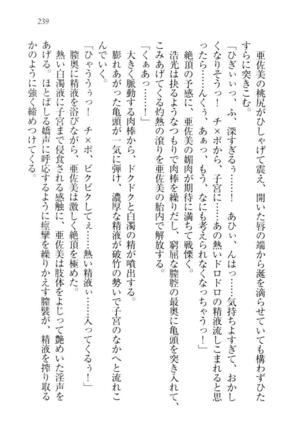 239
亜佐美の桃尻がひしゃげて震え、開いた唇の端から涎を滴らせていても構わずひた
すらに突きこむ。
「ひぎぃぃっ、ふ、深すぎるぅ……！　あひぃ、んはぁっ……気持ちよすぎて、おかし
くなりそうっ！　チ×ポから、子宮に……あの熱いドロドロの精液流しこまれると思
ったら……んくぅ、あぁっ、もう、なにも考えられなくなっちゃうぅっ！」
絶頂の予感に、亜佐美の媚肉が期待に満ちて戦慄く。
浩光は抉るようなつもりで肉棒を繰りだし、窮屈な膣腔の最奥に亀頭を突き入れて、
こみあげてくる灼熱の滾りを亜佐美の胎内で解放する。
「くぁあっ……！」
大きく脈動する肉棒から、ドクドクと白濁の精が噴出する。
膨れあがった亀頭が一気に弾け、濃厚な精液が破竹の勢いで子宮のなかへと流れこ
んでいく。
「ひゃううぅっ！　チ×ポ、ビクビクしてぇ……熱い精液ぃ……入ってくるぅ！」
膣粘膜に精液を浴びながら、亜佐美は激しく絶頂を極めた。
熱い白濁液に子宮まで侵食される感触に、亜佐美は肢体をよじって艶めいた淫声を
あげる。ほとばしる嬌声に呼応するように痙攣を繰りかえす膣襞が、精液を搾り取る
かのように強く締めつけてくる。